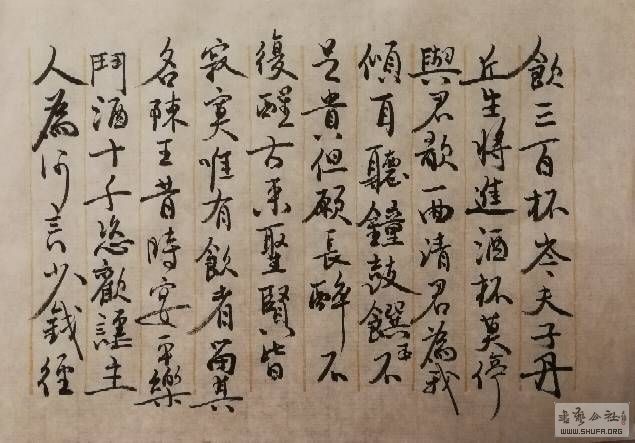 飲三百杯岑夫子丹
丘生將進酒杯莫停
與君歌一曲請君為我
傾耳聽鐘鼓饌玉不
足貴但願長醉不
復醒古來聖賢皆
寂寞唯有飲者留其
名陳王昔時宴平樂
鬥酒十千恣歡謔主
人為何言少錢徑
书艺公社
WWW.SHUFA.ORG